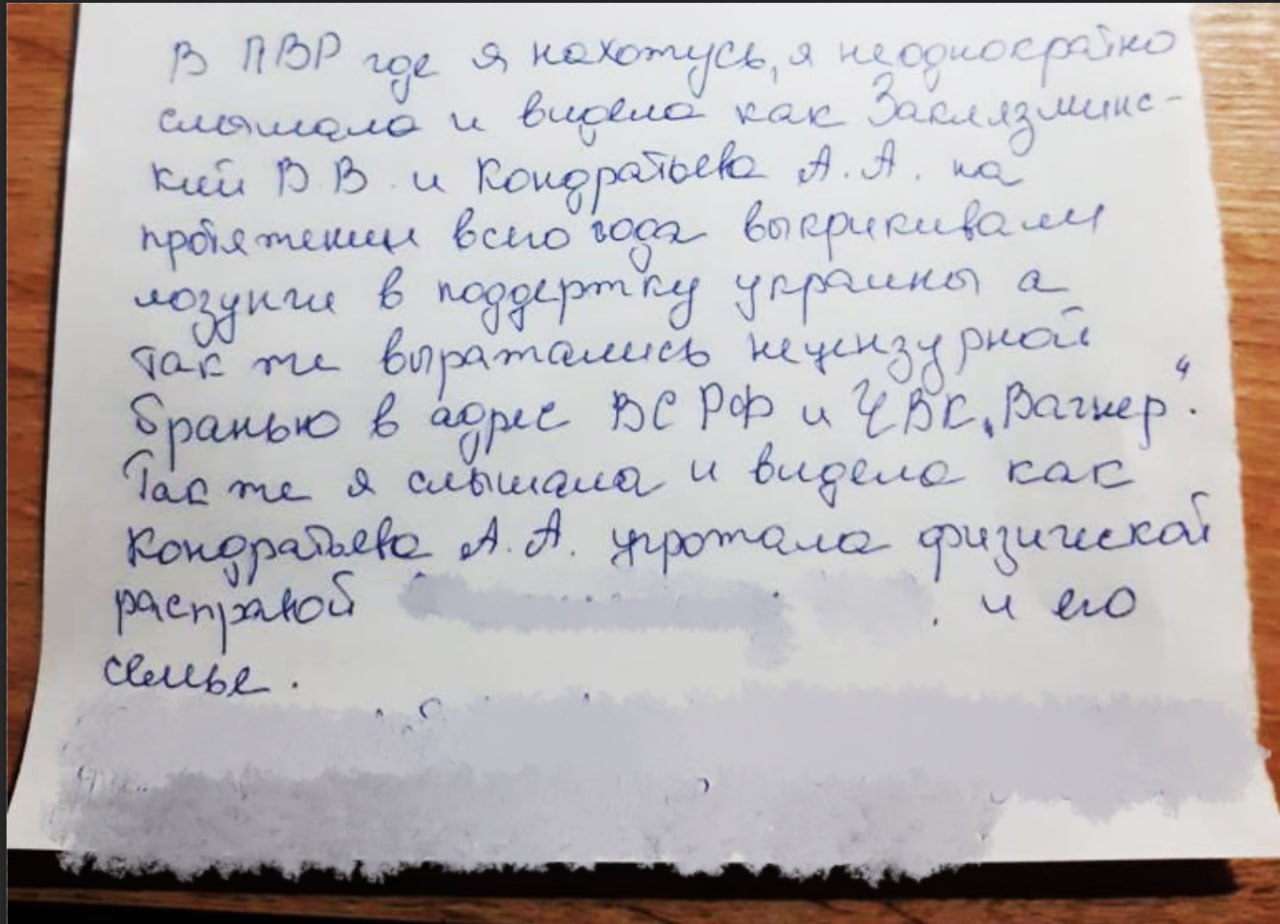 В ПВР где я нахожусь, я неоднократно
слышала и видела как Заклязминс-
кий В В. и Кондратьева А. А. на
протяжении всего года выкрикивали
лозунги в поддержку украины а
так же выражались нецензурной
бранью в адрес ВС РФ и ЧВК „Вагнер“.
Так же я слышала и видела как
Кондратьева А. А. угрожала физической
расправой и его
семье.